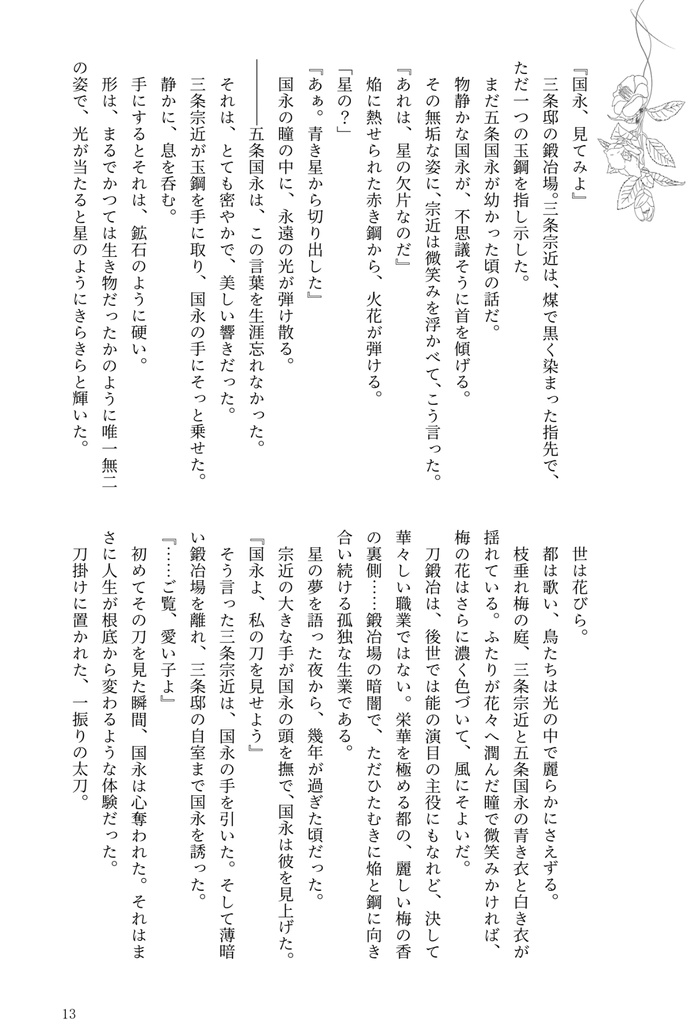 『国永、見てみよ』
三条邸の鍛冶場。三条宗近は、煤で黒く染まった指先で、
ただ一つの玉鋼を指し示した。
まだ五条国永が幼かった頃の話だ。
物静かな国永が、不思議そうに首を傾げる。
その無垢な姿に、宗近は微笑みを浮かべて、こう言った。
『あれは、星の欠片なのだ』
焔に熱せられた赤き鋼から、火花が弾ける。
「星の？」
『あぁ。青き星から切り出した』
国永の瞳の中に、永遠の光が弾け散る。
――――五条国永は、この言葉を生涯忘れなかった。
それは、とても密やかで、美しい響きだった。
三条宗近が玉鋼を手に取り、国永の手にそっと乗せた。
静かに、息を呑む。
手にするとそれは、鉱石のように硬い。
形は、まるでかつては生き物だったかのように唯一無二
の姿で、光が当たると星のようにきらきらと輝いた。
世は花びら。
都は歌い、鳥たちは光の中で麗らかにさえずる。
枝垂れ梅の庭、三条宗近と五条国永の青き衣と白き衣が
揺れている。ふたりが花々へ潤んだ瞳で微笑みかければ、
梅の花はさらに濃く色づいて、風にそよいだ。
刀鍛冶は、後世では能の演目の主役にもなれど、決して
華々しい職業ではない。栄華を極める都の、麗しい梅の香
の裏側……鍛冶場の暗闇で、ただひたむきに焔と鋼に向き
合い続ける孤独な生業である。
星の夢を語った夜から、幾年が過ぎた頃だった。
宗近の大きな手が国永の頭を撫で、国永は彼を見上げた。
『国永よ、私の刀を見せよう』
そう言った三条宗近は、国永の手を引いた。そして薄暗
い鍛冶場を離れ、三条邸の自室まで国永を誘った。
『……ご覧、愛い子よ』
初めてその刀を見た瞬間、国永は心奪われた。それはま
さに人生が根底から変わるような体験だった。
刀掛けに置かれた、一振りの太刀。
13